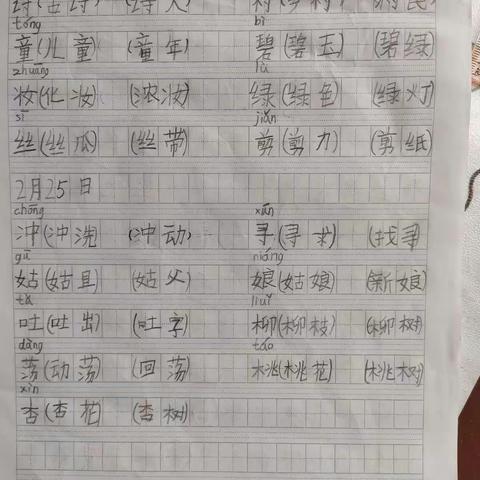 tóng bì
童(儿童) (童年) 碧(碧玉) (碧绿)
zhuāng lǜ
妆(化妆) (浓妆) 绿(绿色) (绿灯)
sī jiǎn
丝(丝瓜) (丝带) 剪(剪力) (剪纸)
2月25日
chōng xún
冲(冲洗) (冲动) 寻(寻求) (找寻)
gū niáng
姑(姑且) (姑父) 娘(姑娘) (新娘)
tǔ
吐(吐出) (吐字) 柳(柳枝) (柳树)
dàng táo
荡(动荡) (回荡) 桃(桃花) (桃树)
xìn
杏(杏花) (杏树)